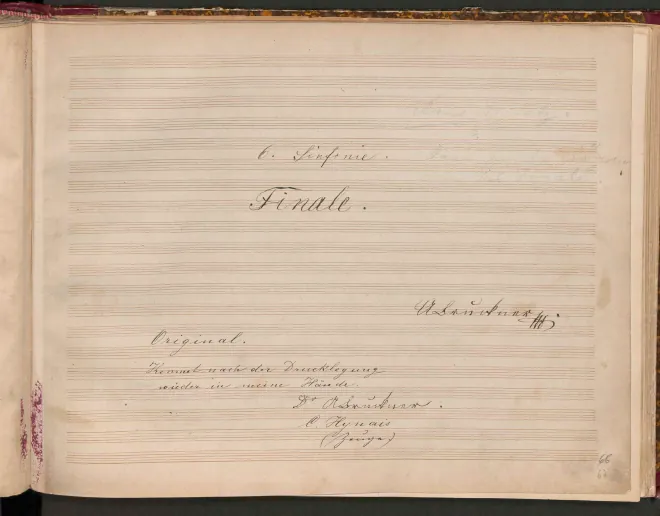 6. Sinfonie.
Finale.
ABruckner
Original.
Kommt nach der Drucklegung
wieder in meine Hände.
Dr ABruckner.
C. Hynais
(Zeuge)
66